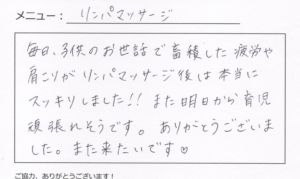 メニュー： リンパマッサージ
毎日、子供のお世話で蓄積した疲労や
肩こりがリンパマッサージ後は本当に
スッキリしました!! また明日から育児
頑張れそうです。ありがとうございま
した。また来たいです♡
ご協力、ありがとうございます！